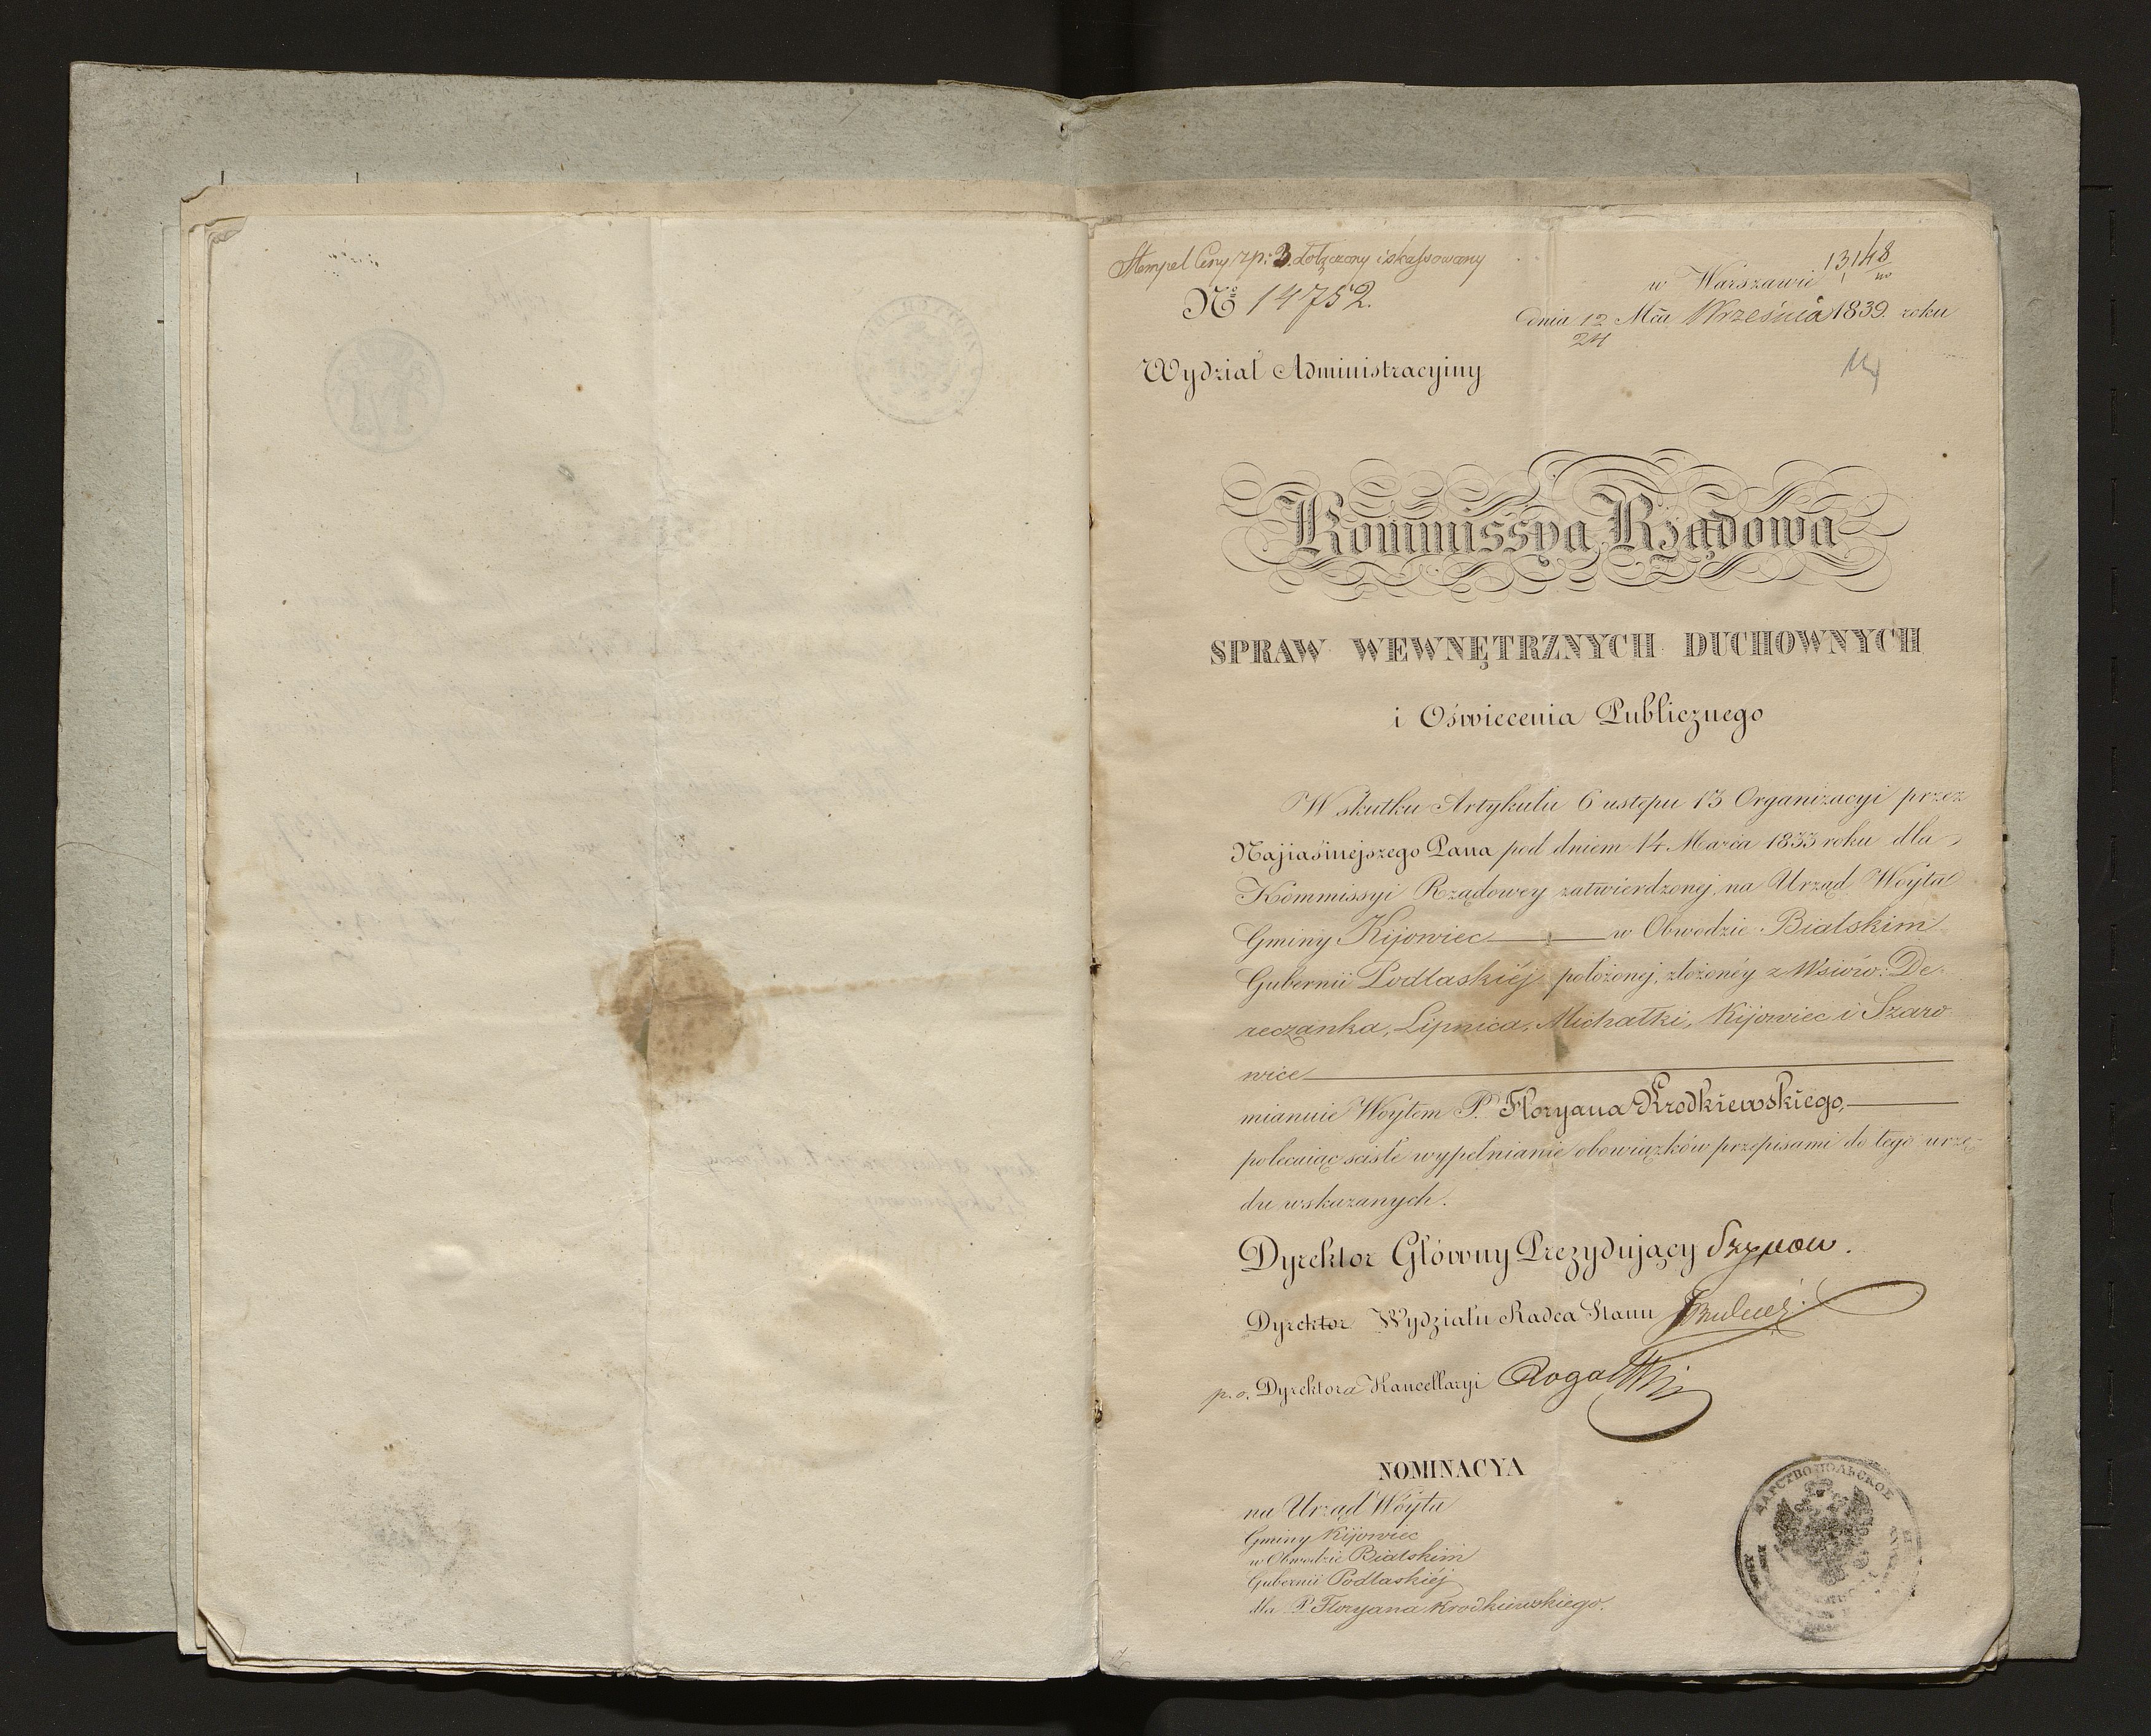 Stempel Ceny zp: 3. dołączony i skassowany
13148
w Warszawie
№ 14752.
dnia 12/24 Mca Września 1839. roku
Wydział Administracyiny
Kommissya Rządowa
SPRAW WEWNĘTRZNYCH DUCHOWNYCH
i Oświecenia Publicznego
W skutku Artykułu 6 ustępu 13 Organizacyi przez
Najiaśniejszego Pana pod dniem 14 Marca 1833 roku dla
Kommissyi Rządowey zatwierdzonej, na Urząd Woyta
Gminy Kijowiec w Obwodzie Bialskim
Gubernii Podlaskiéj położonej, złożonéy z Wsiów: De-
reczanka, Lipnica, Michałki, Kijowiec i Szaro
wice
mianuie Woytem P. Floryana Krodkiewskiego,
polecaiąc scisłe wypełnianie obowiązków przepisami do tego urzę-
du wskazanych.
Dyrektor Główny Prezydujący
Dyrektor Wydziału Radca Stanu
p.o. Dyrektora Kancellaryi
NOMINACYA
na Urząd Woyta
Gminy Kijowiec
w Obwodzie Bialskim
Gubernii Podlaskiéj
dla P. Floryana Krodkiewskiego.
ЦАРСТВО ПОЛЬСКОЕ